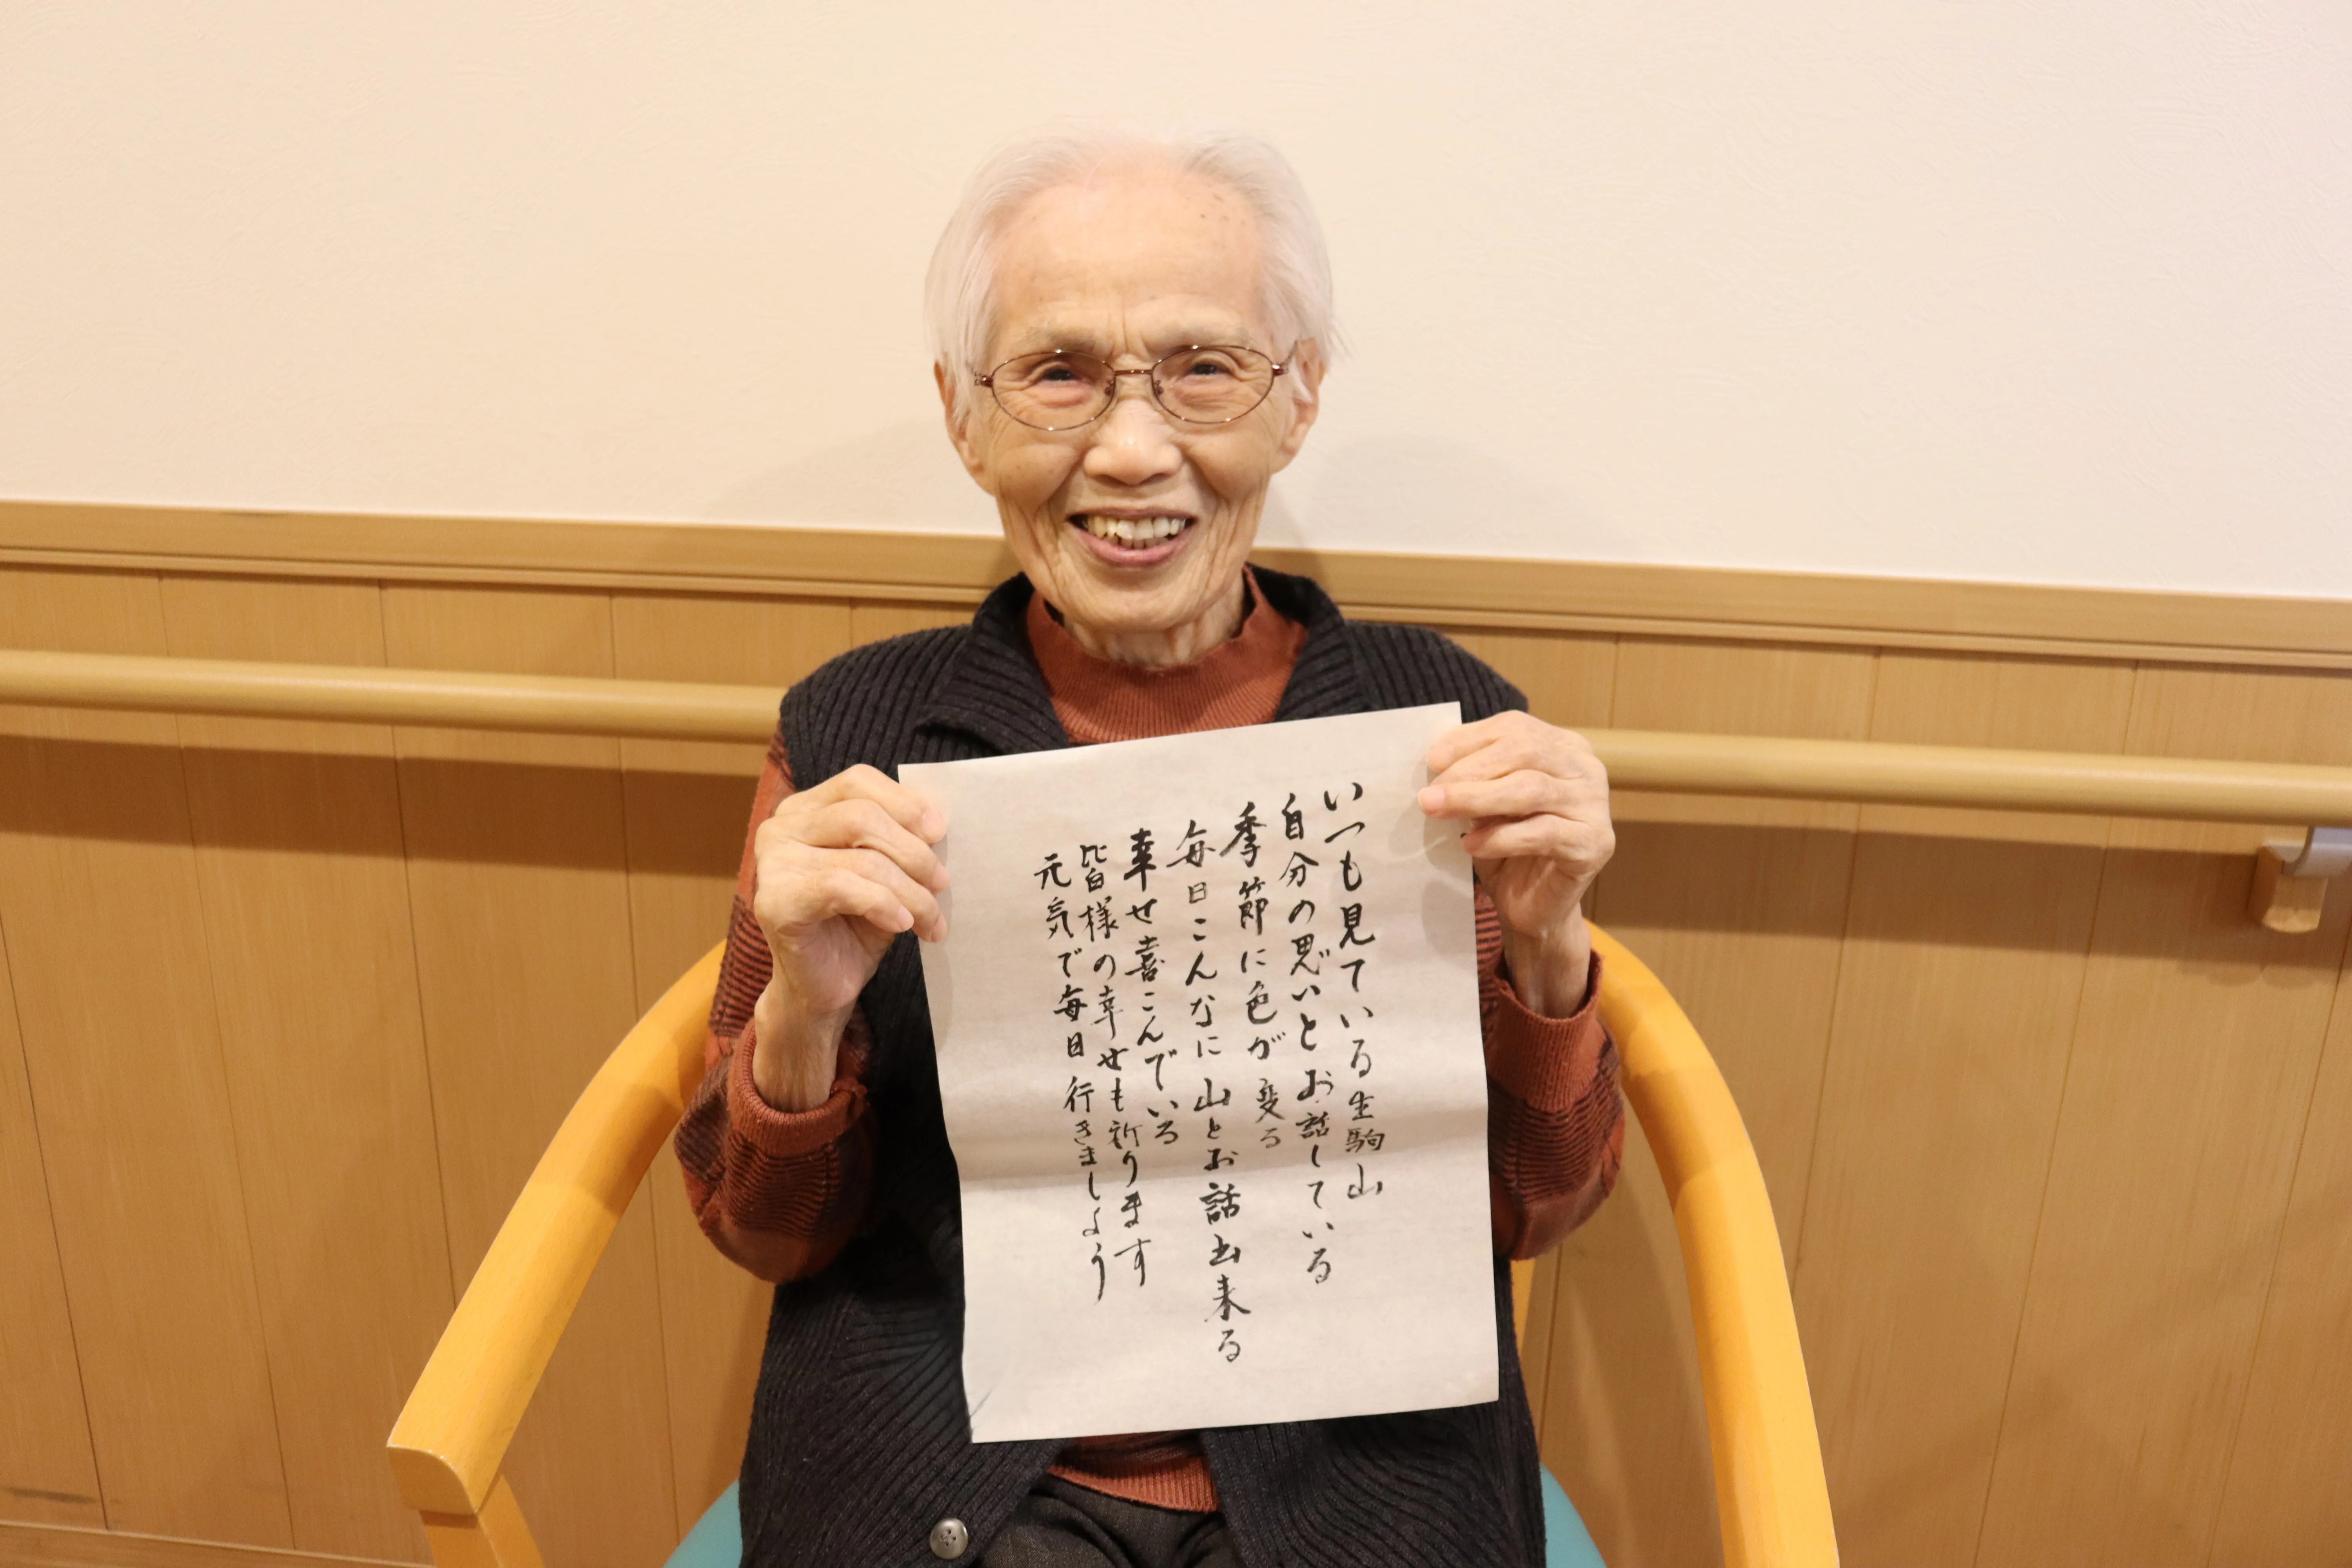 いつも見ている生駒山
自分の思いとお話している
季節に色が変る
毎日こんなに山とお話出来る
幸せ喜こんでいる
皆様の幸せも祈ります
元気で毎日行きましよう